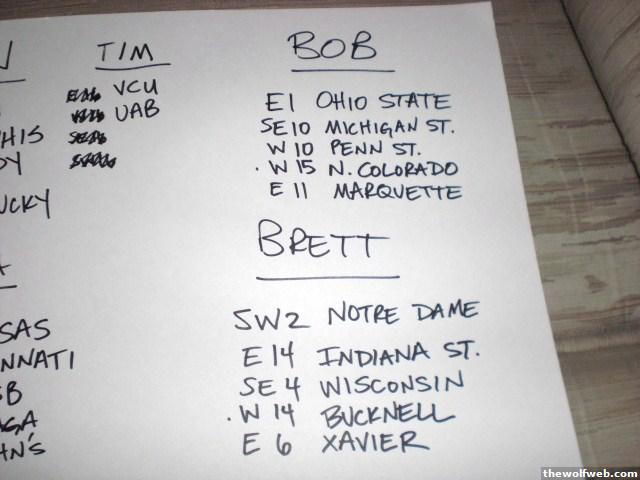 TIM
VCU
UAB
HIS
DY
UCKY
SAS
NNATI
B
HN'S
BOB
E1 OHIO STATE
SE10 MICHIGAN ST.
W10 PENN ST.
. W15 N. COLORADO
E 11 MARQUETTE
BRETT
SW2 NOTRE DAME
E 14 INDIANA ST.
SE 4 WISCONSIN
. W 14 BUCKNELL
E 6 XAVIER
thewolfweb.com